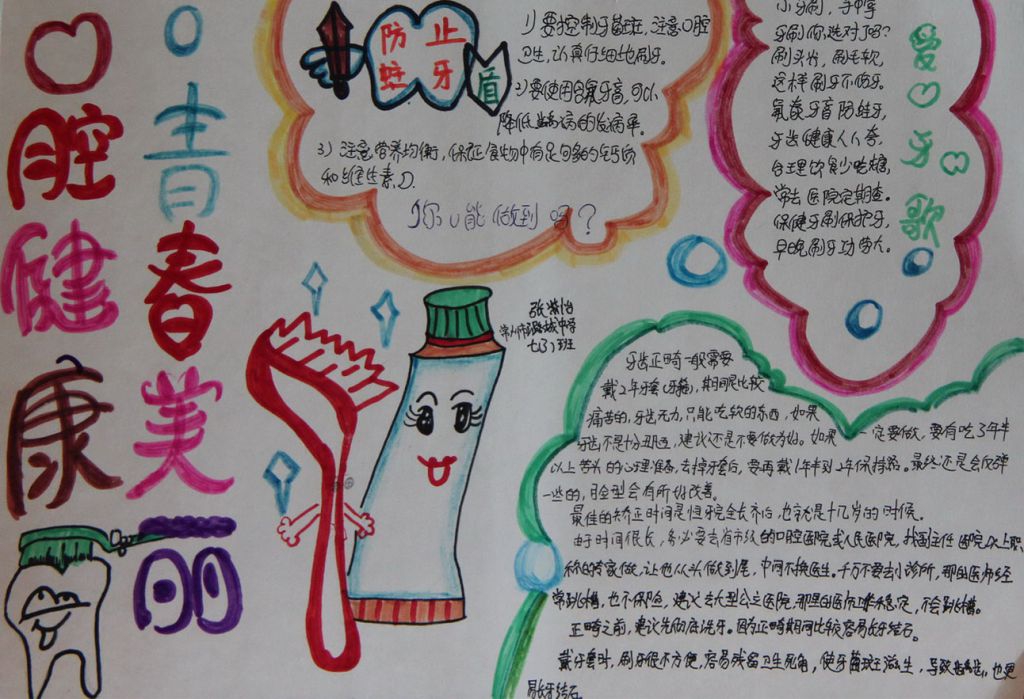 口腔健康
青春美丽
防止
蛀牙
盾
1)要控制牙菌斑,注意口腔
卫生,认真仔细地刷牙。
2)要使用含氟牙膏,可以
降低龋病的发病率。
3)注意营养均衡,保证食物中有足够多的钙质
和维生素D.
你能做到吗?
爱牙歌
小牙刷,手中拿
牙刷你选对了吗?
刷头小,刷毛软,
这样刷牙不伤牙。
氟袋牙膏防蛀牙,
牙齿健康人人夸,
合理饮食少吃糖,
常去医院定期查。
保健牙刷保护牙,
早晚刷牙功劳大。
张紫怡
常州市潞城中学
七(3)班
牙齿正畸一般需要
戴2年牙套(牙箍),期间是比较
痛苦的,牙齿无力,只能吃软的东西,如果
牙齿不是十分丑陋,建议还是不要做为好。如果一定要做,要有吃3年半
以上苦头的心理准备,去掉牙套后,要再戴1年半到2年保持器。最终还是会反弹
一些的,脸型会有所改善。
最佳的矫正时间是恒牙完全长齐后,也就是十几岁的时候。
由于时间很长,务必要去省市级的口腔医院或人民医院,找副主任医院以上职
称的专家做,让他从头做到尾,中间不换医生。千万不要去小诊所,那的医师经
常跳槽,也不保险,建议去大型公立医院,那里的医师工作稳定,不会跳槽。
正畸之前,建议先彻底洗牙。因为正畸期间比较容易长牙结石。
戴牙套时,刷牙很不方便,容易残留卫生死角,使牙菌斑滋生,导致也更
易长牙结石。